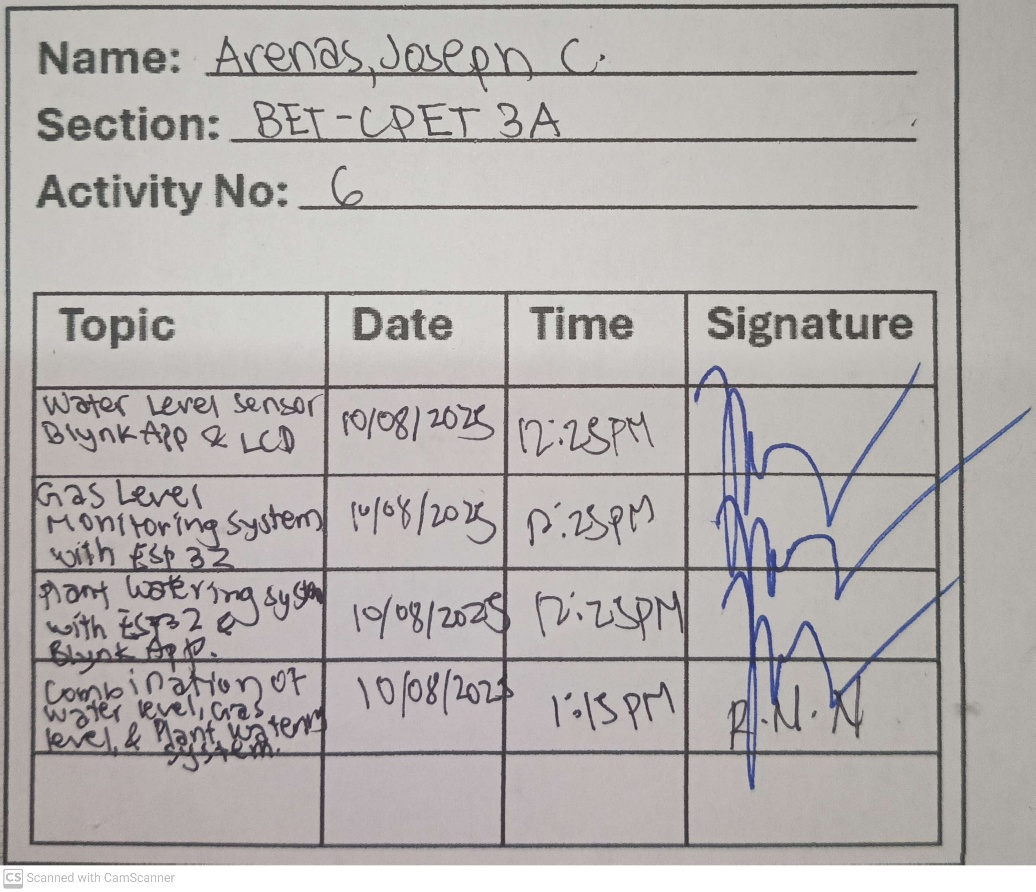 Name: Arenas, Joseph C.
Section: BET-CPET 3A
Activity No: 6
Topic Date Time Signature
Water Level Sensor
Blynk App & LCD
10/08/2025 12:25PM
Gas Level
Monitoring system
with Esp 32
10/08/2025 12:25PM
Plant Watering system
with ESP32 &
Blynk App.
10/08/2025 12:25PM
Combination of
water level, Gas
level, & Plant Watering
system.
10/08/2025 1:15PM R.N.N
CS Scanned with CamScanner